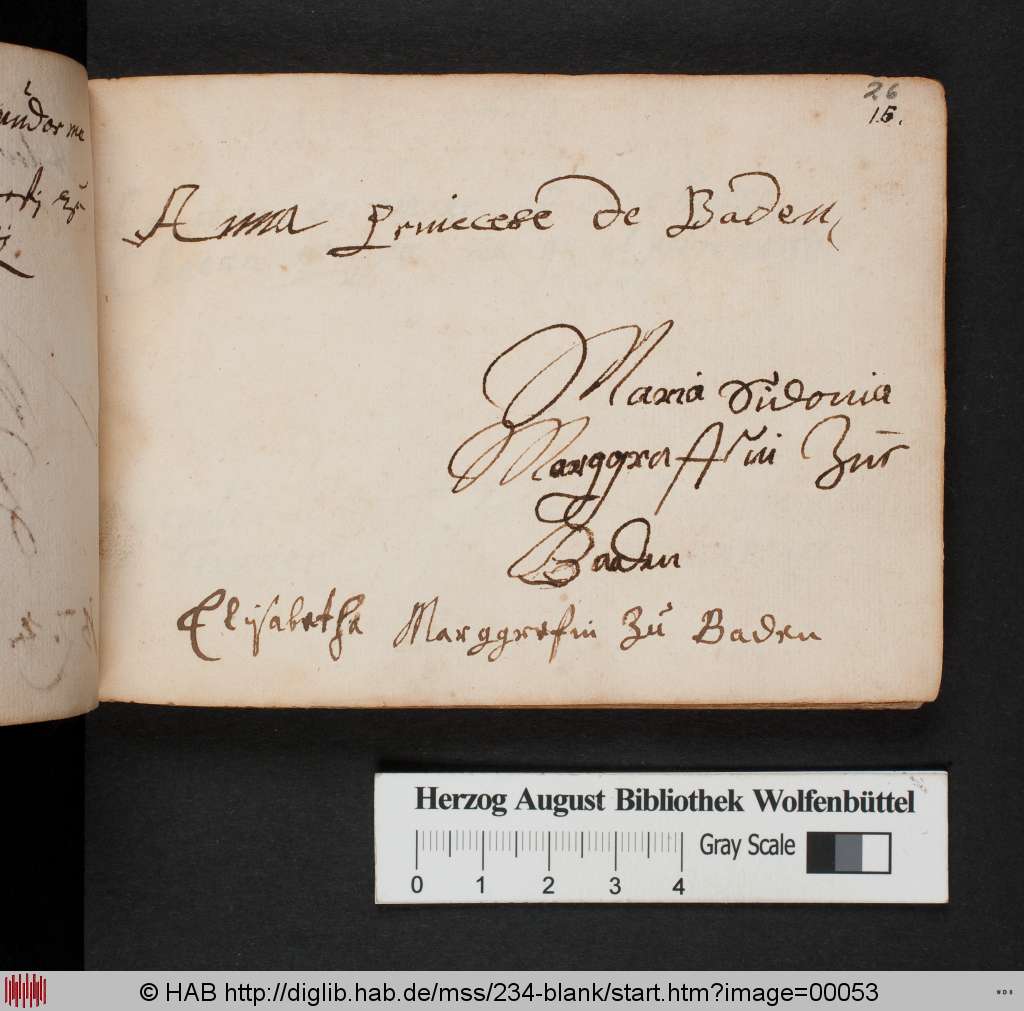 26
15.
Anna Princcese de Baden
Maria Sidonia
Marggraffin Zur
Baden
Elisabetha Marggrefin Zu Baden
Herzog August Bibliothek Wolfenbüttel
Gray Scale
0 1 2 3 4
© HAB http://diglib.hab.de/mss/234-blank/start.htm?image=00053